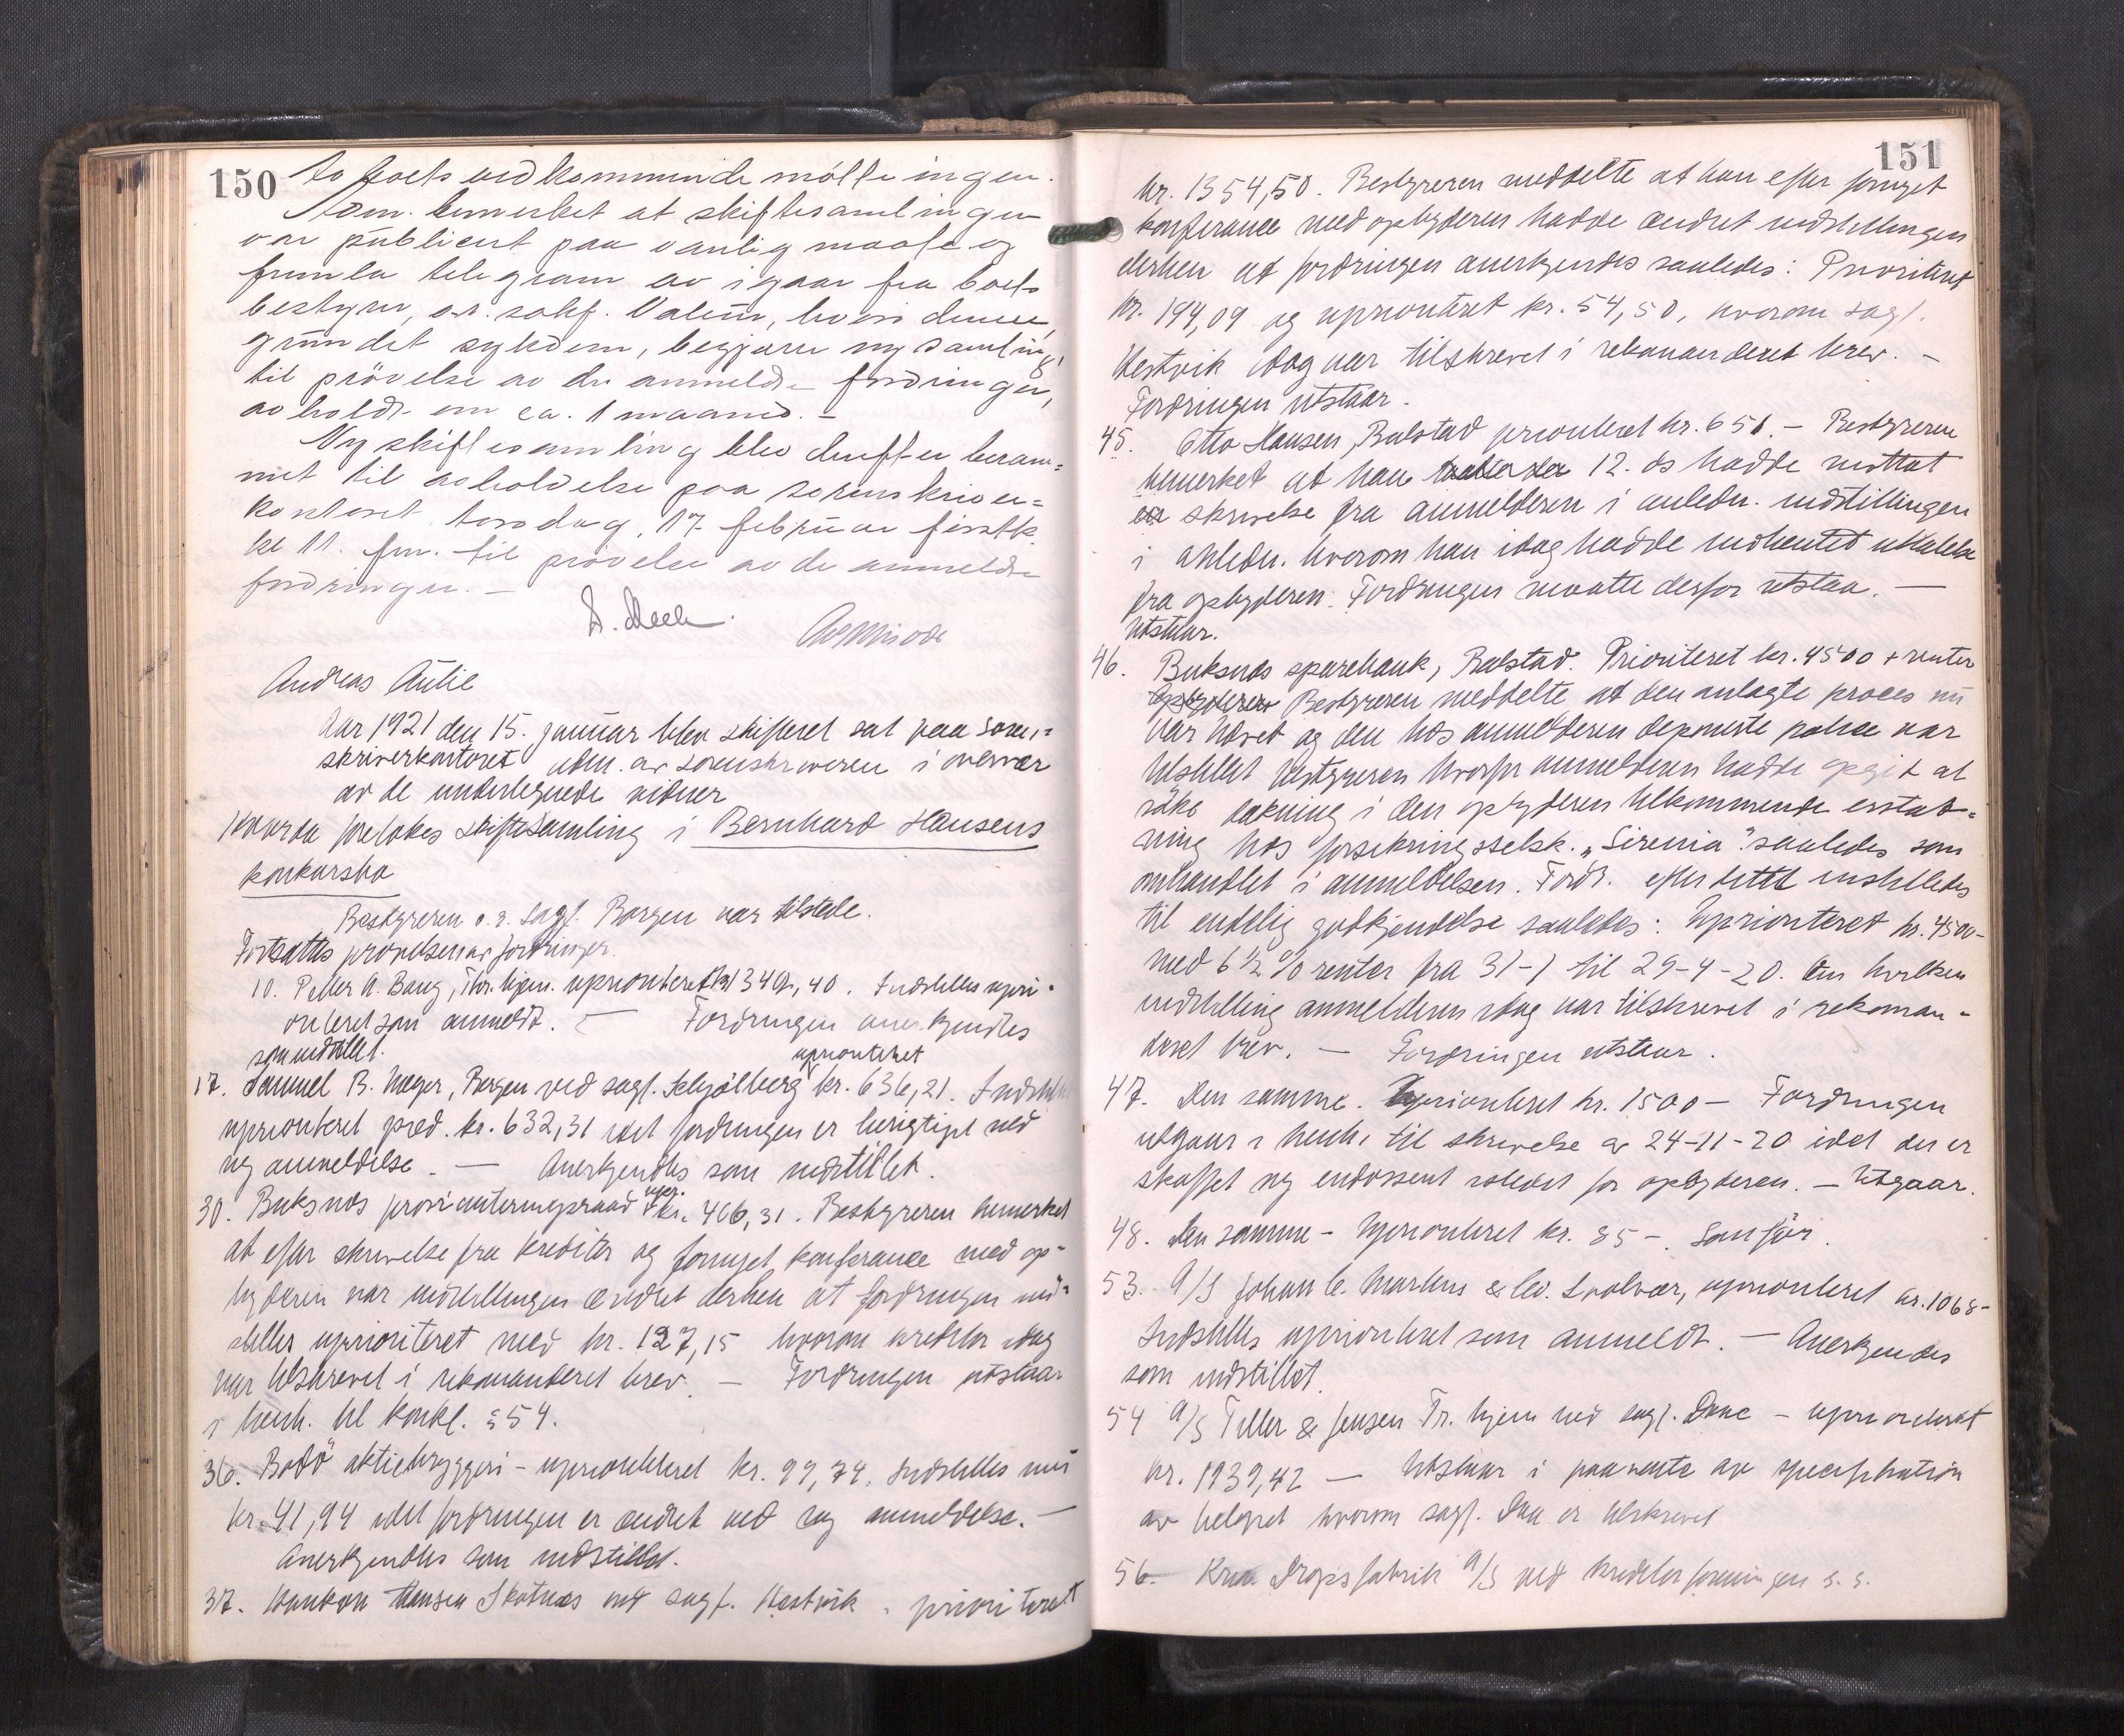 150
to boets vedkommende mötte ingen.
Dom. bemerket at skiftesamlingen
var publicert paa vanlig maate og
fremla telegram av igaar fra boets
bestyrer, o.r.sakf. Valeur, hvori denne,
grundet sykdom, begjærer ny samling,
til prövelse av de anmeldte fordringer,
avholdt om ca. 1 maaned. -
Ny skiftesamling blev derefter beram=
met til avholdelse paa sorenskriver=
kontoret torsdag, 17 februar førstk.
kl 11. fm. til prövelse av de anmeldte
fordringer. -
Andreas Aulie
Aar 1921 den 15. januar blev skifteret sat paa soren=
skriverkontoret adm. av sorenskriveren i overvær
av de undertegnede vidner
Hvorda foretokes skiftesamling i Bernhard Hansens
konkursbo
Bestyreren o.r. sagf. Borgen var tilstede.
Fortsattes prøvelsen av fordringer.
10. Petter A. Bang, Thr.hjem. uprioritert kr 1340,40. Indstilles upri-
oriteret som anmeldt. - Fordringen anerkjendtes
som indstillet.
17. Samuel B. Meyer, Bergen ved sagf. Schjölberg uprioriteret kr. 636,21. Indstilles
uprioritert god. kr. 632,31 idet fordringen er berigtiget ved
ny anmeldelse. - Anerkjendtes som indstillet.
30. Buksnes provianteringsraad upr. kr. 406,31. Bestyreren bemerket
at efter skrivelse fra kreditor og fornyet konferance med op-
byderen var indstillingen ændret derhen at fordringen ind-
stilles uprioriteret med kr. 127,15 hvorom kreditor idag
var tilskrevet i rekomanderet brev. - Fordringen utstaar
i henh. til konkl. § 54.
36. Bodö aktiebryggeri - uprioriteret kr. 99,74. Indstilles nu
kr. 41,94 idet fordringen er ændret ved ny anmeldelse. -
Anerkjendtes som indstillet.
37. Haakon Hansen Skotnes ved sagf. Hestvik. prioriteret
151
kr. 1354,50. Bestyreren meddelte at han efter fornyet
konferance med opbyderen hadde ændret indstillingen
derhen at fordringen anerkjendes saaledes: Prioriteret
kr. 194,09 og uprioriteret kr. 54,50, hvorom sagf.
Hestvik idag var tilskrevet i rekomanderet brev. -
Fordringen utstaar.
45. Otto Hansen, Balstad prioriteret kr. 651. - Bestyreren
bemerket at han 12. ds hadde mottat
en skrivelse fra anmelderen i anledn. indstillingen
i anledn. hvorom han idag hadde indhentet uttalelse
fra opbyderen. Fordringen maatte derfor utstaa. -
Utstaar.
46. Buksnes sparebank, Balstad. Prioriteret kr. 4500 + renter
Opbyderen Bestyreren meddelte at den anlagte proces nu
var hævet og den hos anmelderen deponerte police var
tilstillet bestyreren hvorfor anmelderen hadde opgit at
söke dækning i den opbyderen tilkommende erstat-
ning hos forsikringsselsk. "Sirenia" saaledes som
omhandlet i anmeldelsen. Fordr. efter dette indstilledes
til endelig godkjendelse saaledes: Uprioriteret kr. 4500-
med 6 ½ % renter fra 31-1 til 29-4-20. Om hvilken
indstilling anmelderen idag var tilskrevet i rekoman-
deret brev. - Fordringen utstaar.
47. Den samme. Uprioriteret kr. 1500 - Fordringen
utgaar i henh. til skrivelse av 24-11-20 idet der er
skaffet ny endossent istedet for opbyderen. - Utgaar.
48. Den samme - Uprioriteret kr. 85 -. Som för.
53. A/S Johan C. Martens & Co. Svolvær, uprioriteret kr. 1068-
Indstilles uprioriteret som anmeldt. - Anerkjendes
som indstillet.
54 A/S Tiller & Jensen Tr. hjem ved sagf. - uprioriteret
kr. 1939,42 - Utstaar i paavente av specifikation
av belöpet hvorom sagf. er tilskrevet
56. Kria Dropsfabrik A/S ved kreditorforeningen s. s.